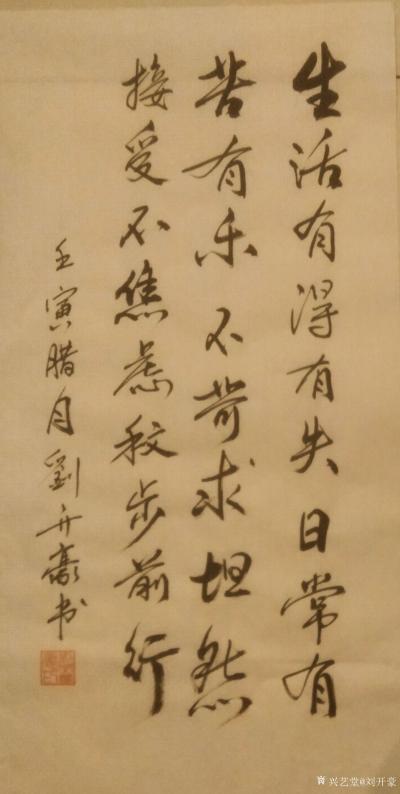 生活有得有失日常有
苦有乐不苛求坦然
接受不焦虑稳步前行
壬寅腊月劉开豪书
兴艺堂@刘开豪